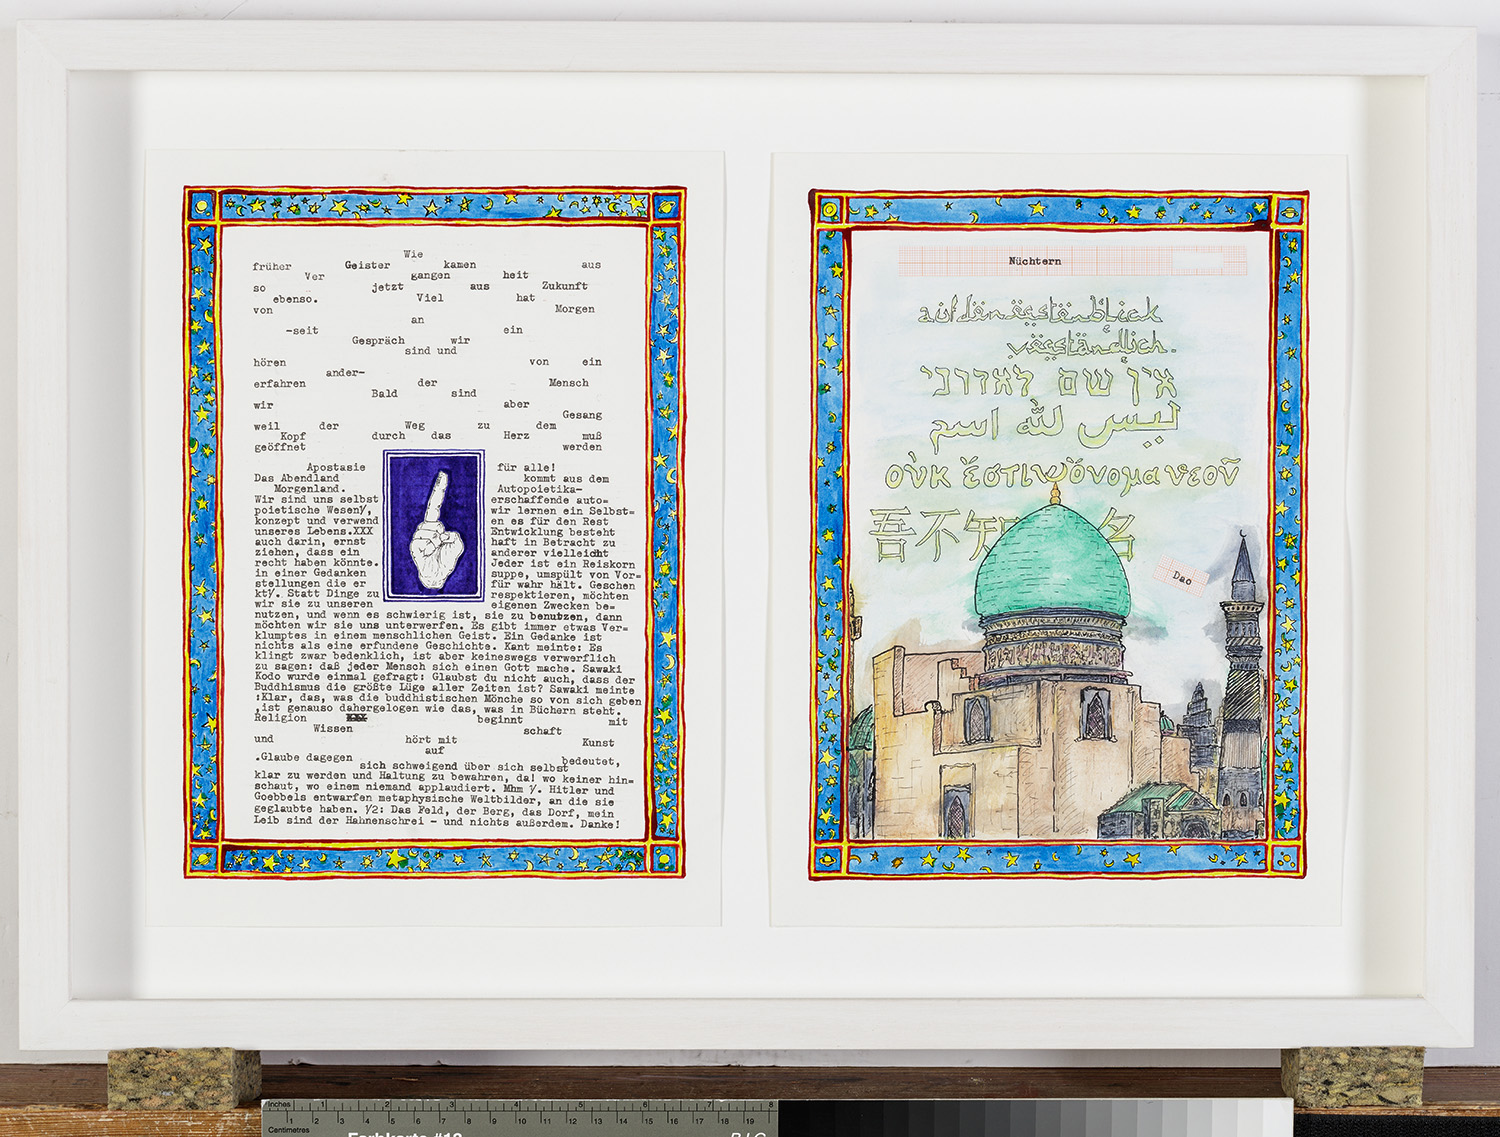 Wie
früher Geister kamen aus
Ver gangen heit
so jetzt aus Zukunft
ebenso. Viel hat
von Morgen
an
-seit ein
Gespräch wir
sind und
hören von ein
ander-
erfahren der Mensch
Bald sind
wir aber
Gesang
weil der Weg zu dem
Kopf durch das Herz muß
geöffnet werden
Apostasie für alle!
Das Abendland kommt aus dem
Morgenland. Autopoietika-
Wir sind uns selbst erschaffende auto=
poietische Wesen/, wir lernen ein Selbst=
konzept und verwend en es für den Rest
unseres Lebens.XXX Entwicklung besteht
auch darin, ernst haft in Betracht zu
ziehen, dass ein anderer vielleicht
recht haben könnte. Jeder ist ein Reiskorn
in einer Gedanken suppe, umspült von Vor=
stellungen die er für wahr hält. Geschen
kt/. Statt Dinge zu respektieren, möchten
wir sie zu unseren eigenen Zwecken be=
nutzen, und wenn es schwierig ist, sie zu benutzen, dann
möchten wir sie uns unterwerfen. Es gibt immer etwas Ver=
klumptes in einem menschlichen Geist. Ein Gedanke ist
nichts als eine erfundene Geschichte. Kant meinte: Es
klingt zwar bedenklich, ist aber keineswegs verwerflich
zu sagen: daß jeder Mensch sich einen Gott mache. Sawaki
Kodo wurde einmal gefragt: Glaubst du nicht auch, dass der
Buddhismus die größte Lüge aller Zeiten ist? Sawaki meinte
:Klar, das, was die buddhistischen Mönche so von sich geben
,ist genauso dahergelogen wie das, was in Büchern steht.
Religion XXX beginnt mit
Wissen schaft
und hört mit Kunst
auf
.Glaube dagegen bedeutet,
sich schweigend über sich selbst
klar zu werden und Haltung zu bewahren, da! wo keiner hin=
schaut, wo einem niemand applaudiert. Mhm /. Hitler und
Goebbels entwarfen metaphysische Weltbilder, an die sie
geglaubte haben. ½: Das Feld, der Berg, das Dorf, mein
Leib sind der Hahnenschrei - und nichts außerdem. Danke!
Nüchtern
auf den ersten blick
verständlich.
אין שם לאדוני
ليس لله اسم
οὐκ ἔστιν ὄνομα θεοῦ
吾不知 名
Dao
Inches 1 2 3 4 5 6 7 8
Centimetres 1 2 3 4 5 6 7 8 9 10 11 12 13 14 15 16 17 18 19
Farbkarte #13